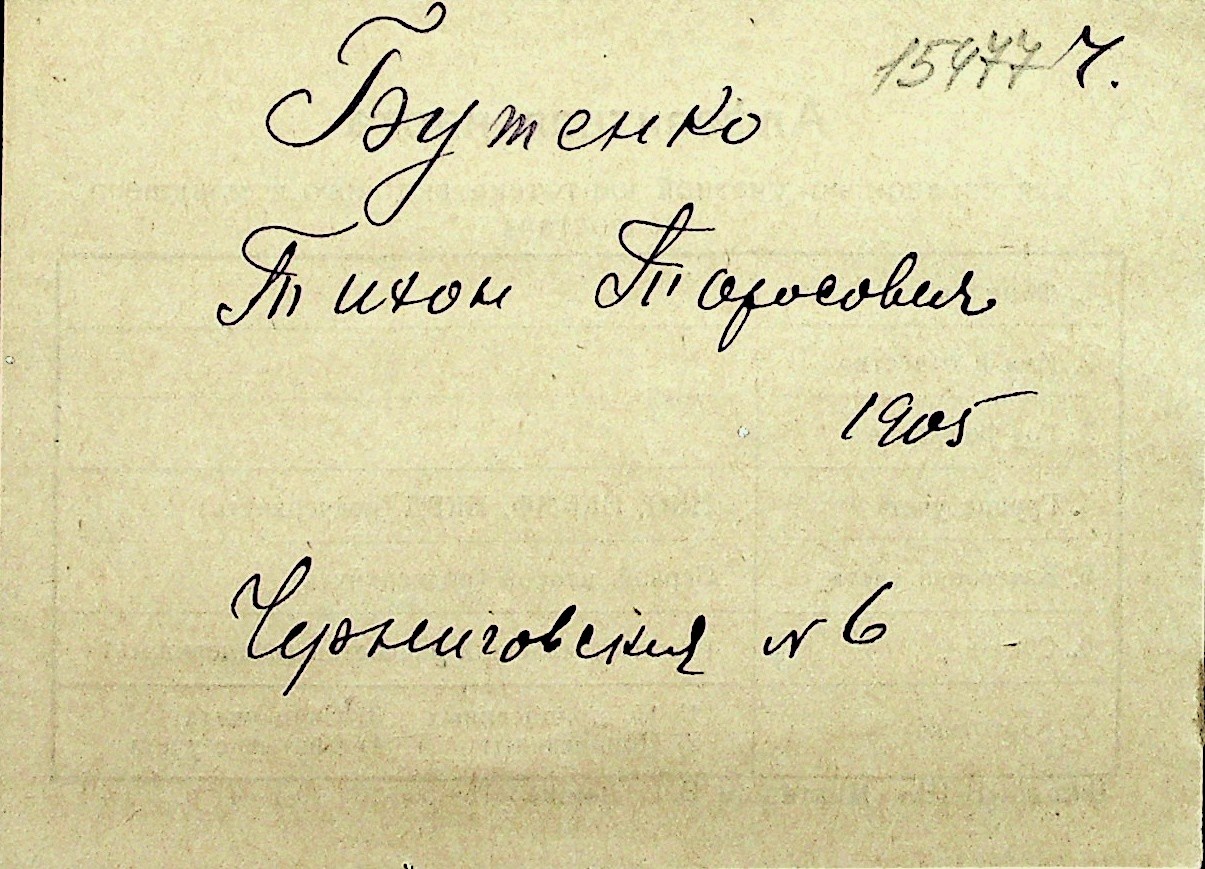 15477 Ч.
Бутенко
Тихон Тарасович
1905
Черниговская № 6